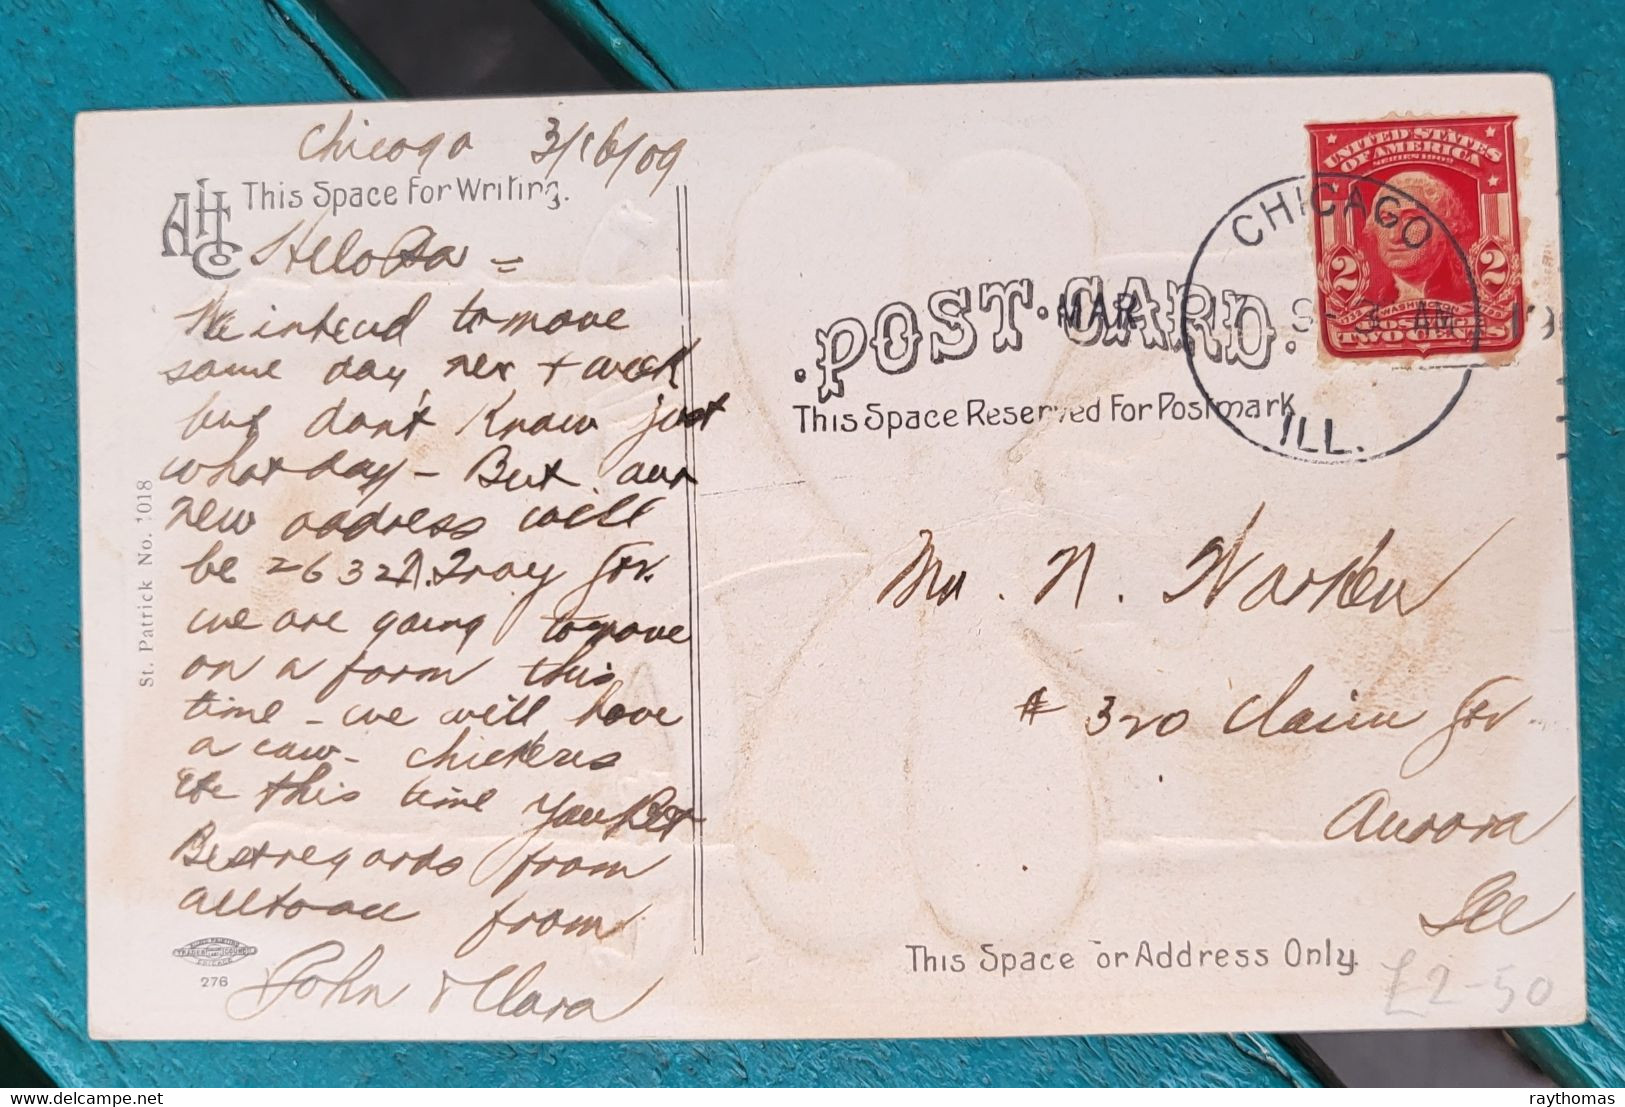 Chicago 3/16/09
AHC
Co
This Space For Writing.
Hello Pa =
We intend to move
some day nex + week
but don't know just
what day - But our
new address will
be 2632 N. Troy Str.
we are going to move
on a farm this
time - we will have
a cow - chickens
etc this time you Bet
Best regards from
all to all from
John & Clara
St. Patrick No. 1018
276
UNITED STATES
OF AMERICA
SERIES 1902
2 2
WASHINGTON
POSTAGE
TWO CENTS
CHICAGO
MAR 17 9-3 AM 190
ILL.
POST CARD.
This Space Reserved For Postmark
Mr. N. Warden
# 320 Claim Str
Aurora
Ill
This Space For Address Only.
£2-50
raythomas